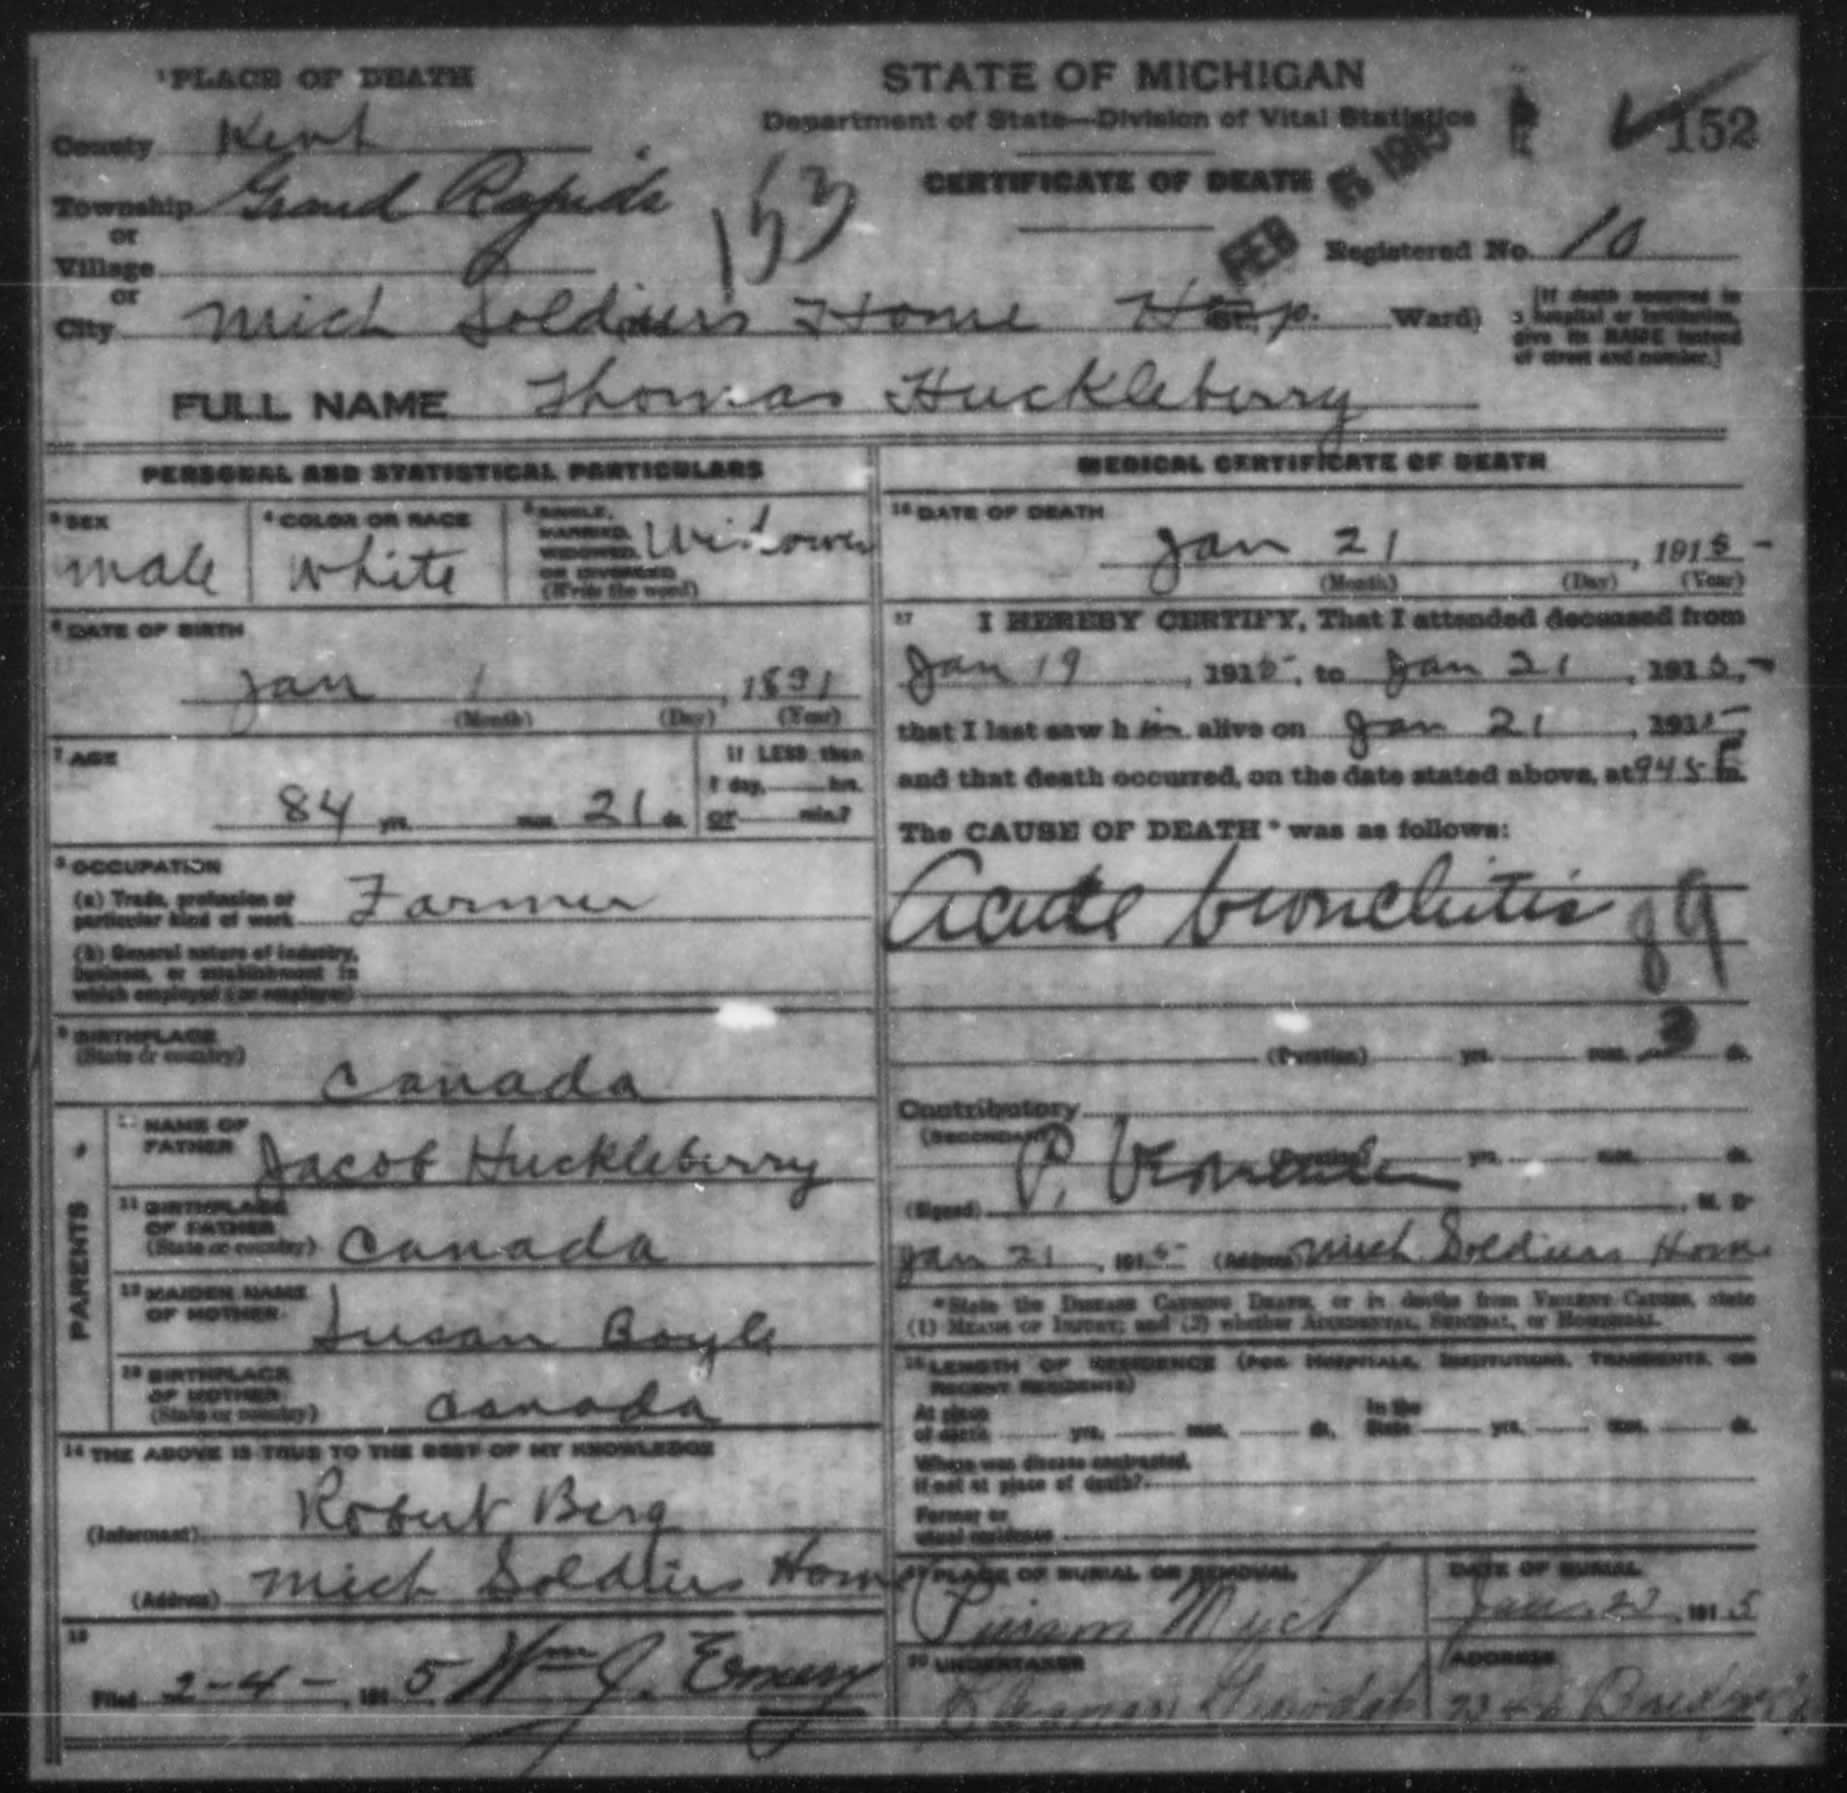 ¹PLACE OF DEATH
County Kent
Township Grand Rapids
or
Village
or
City Mich Soldiers Home Hosp. St., Ward)
STATE OF MICHIGAN
Department of State—Division of Vital Statistics
CERTIFICATE OF DEATH
FEB 5 1915
152
153
Registered No. 10
[If death occurred in
a hospital or institution,
give its NAME instead
of street and number.]
FULL NAME Thomas Huckleberry
PERSONAL AND STATISTICAL PARTICULARS
³ SEX
male
⁴ COLOR OR RACE
white
⁵ SINGLE,
MARRIED,
WIDOWED,
OR DIVORCED
(Write the word)
Widower
⁶ DATE OF BIRTH
Jan 1, 1831
(Month) (Day) (Year)
⁷ AGE
84 yrs. mos. 21 ds.
If LESS than
1 day, hrs.
or min.?
⁸ OCCUPATION
(a) Trade, profession or
particular kind of work Farmer
(b) General nature of industry,
business, or establishment in
which employed (or employer)
⁹ BIRTHPLACE
(State or country)
Canada
PARENTS
¹⁰ NAME OF
FATHER Jacob Huckleberry
¹¹ BIRTHPLACE
OF FATHER
(State or country) Canada
¹² MAIDEN NAME
OF MOTHER Susan Boyle
¹³ BIRTHPLACE
OF MOTHER
(State or country) Canada
¹⁴ THE ABOVE IS TRUE TO THE BEST OF MY KNOWLEDGE
(Informant) Robert Berg
(Address) Mich Soldiers Home
¹⁵
Filed 2-4-, 1915 Wm J. Emery
MEDICAL CERTIFICATE OF DEATH
¹⁶ DATE OF DEATH
Jan 21, 1915
(Month) (Day) (Year)
¹⁷ I HEREBY CERTIFY, That I attended deceased from
Jan 19, 1915, to Jan 21, 1915,
that I last saw him alive on Jan 21, 1915,
and that death occurred, on the date stated above, at 945 P m.
The CAUSE OF DEATH* was as follows:
Acute bronchitis 89
(Duration) yrs. mos. 3 ds.
Contributory
(SECONDARY)
(Duration) yrs. mos. ds.
(Signed) P. , M. D.
Jan 21, 1915 (Address) Mich Soldiers Home
*State the DISEASE CAUSING DEATH, or in deaths from VIOLENT CAUSES, state
(1) MEANS OF INJURY; and (2) whether ACCIDENTAL, SUICIDAL, or HOMICIDAL.
¹⁸ LENGTH OF RESIDENCE (FOR HOSPITALS, INSTITUTIONS, TRANSIENTS, OR
RECENT RESIDENTS)
At place
of death yrs. mos. ds. In the
State yrs. mos. ds.
Where was disease contracted,
if not at place of death?
Former or
usual residence
¹⁹ PLACE OF BURIAL OR REMOVAL
DATE OF BURIAL
Jan. 23, 1915
²⁰ UNDERTAKER
ADDRESS